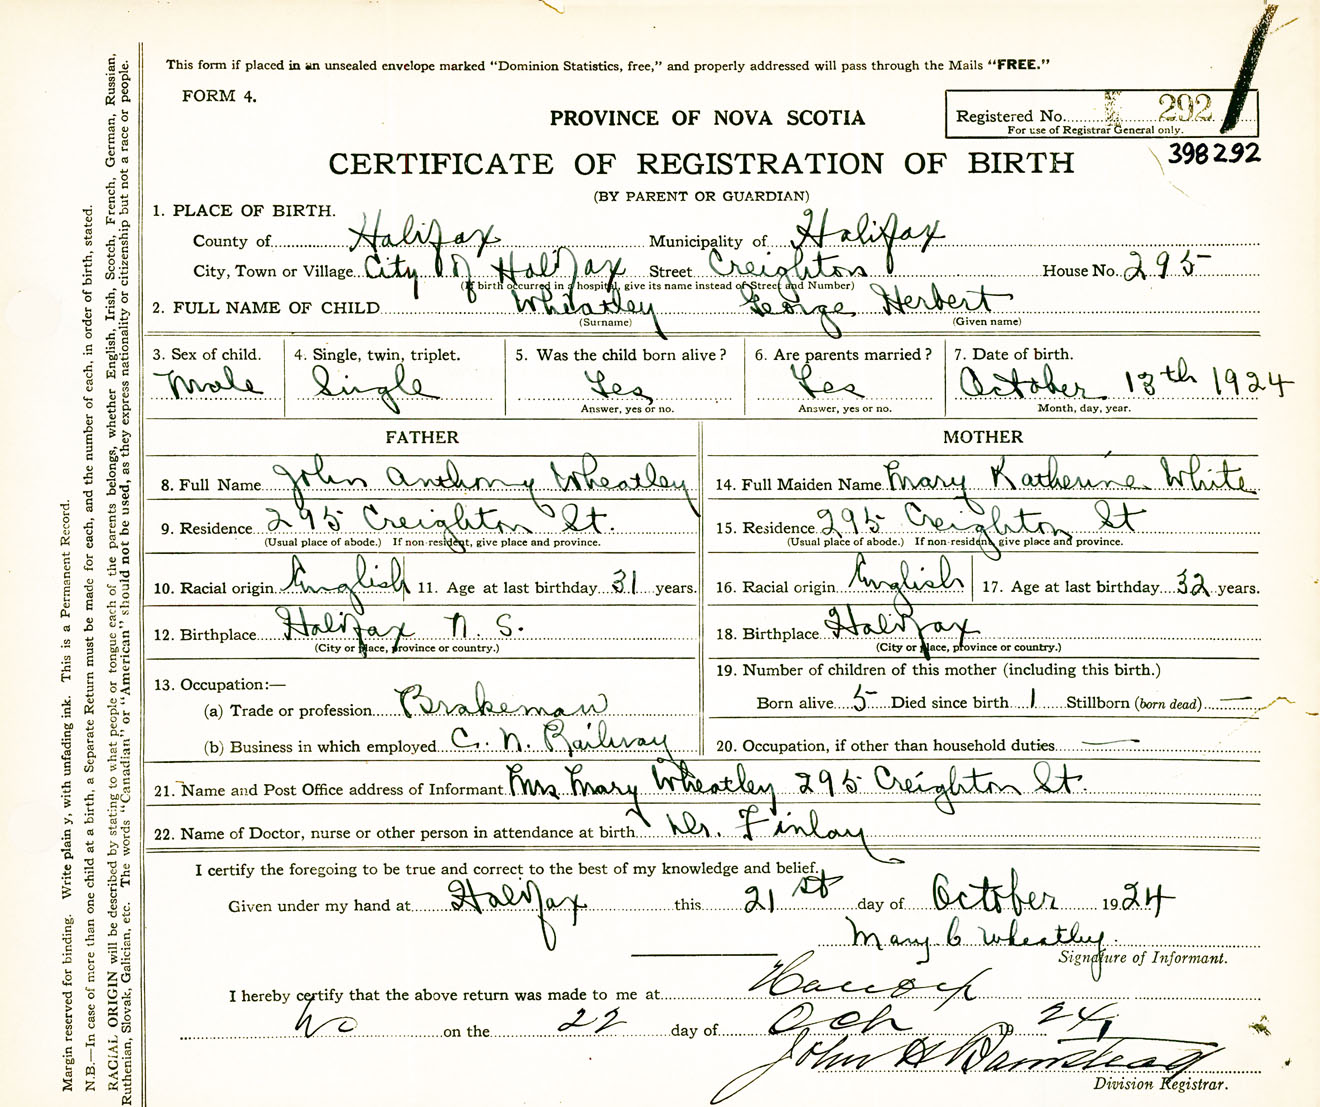 This form if placed in an unsealed envelope marked "Dominion Statistics, free," and properly addressed will pass through the Mails "FREE."
FORM 4.
PROVINCE OF NOVA SCOTIA
Registered No. 292
For use of Registrar General only.
398292
CERTIFICATE OF REGISTRATION OF BIRTH
(BY PARENT OR GUARDIAN)
1. PLACE OF BIRTH.
County of Halifax Municipality of Halifax
City, Town or Village City of Halifax Street Creighton House No. 295
(If birth occurred in a hospital, give its name instead of Street and Number)
2. FULL NAME OF CHILD Wheatley George Herbert
(Surname) (Given name)
3. Sex of child. 4. Single, twin, triplet. 5. Was the child born alive? 6. Are parents married? 7. Date of birth.
Male Single Yes Yes October 13th 1924
Answer, yes or no. Answer, yes or no. Month, day, year.
FATHER MOTHER
8. Full Name John Anthony Wheatley 14. Full Maiden Name Mary Katherine White
9. Residence 295 Creighton St. 15. Residence 295 Creighton St
(Usual place of abode.) If non-resident, give place and province. (Usual place of abode.) If non-resident, give place and province.
10. Racial origin English 11. Age at last birthday 31 years. 16. Racial origin English 17. Age at last birthday 32 years.
12. Birthplace Halifax N. S. 18. Birthplace Halifax
(City or place, province or country.) (City or place, province or country.)
13. Occupation:— 19. Number of children of this mother (including this birth.)
(a) Trade or profession Brakeman Born alive 5 Died since birth 1 Stillborn (born dead) —
(b) Business in which employed C. N. Railway 20. Occupation, if other than household duties —
21. Name and Post Office address of Informant Mrs Mary Wheatley 295 Creighton St.
22. Name of Doctor, nurse or other person in attendance at birth Dr. Finlay
I certify the foregoing to be true and correct to the best of my knowledge and belief.
Given under my hand at Halifax this 21st day of October 1924
Mary C Wheatley.
Signature of Informant.
I hereby certify that the above return was made to me at
on the 22 day of Oct 1924
John H Barnstead
Division Registrar.
Margin reserved for binding. Write plain y, with unfading ink. This is a Permanent Record.
N.B.—In case of more than one child at a birth, a Separate Return must be made for each, and the number of each, in order of birth, stated.
RACIAL ORIGIN will be described by stating to what people or tongue each of the parents belongs, whether English, Irish, Scotch, French, German, Russian,
Ruthenian, Slovak, Galician, etc. The words "Canadian" or "American" should not be used, as they express nationality or citizenship but not a race or people.